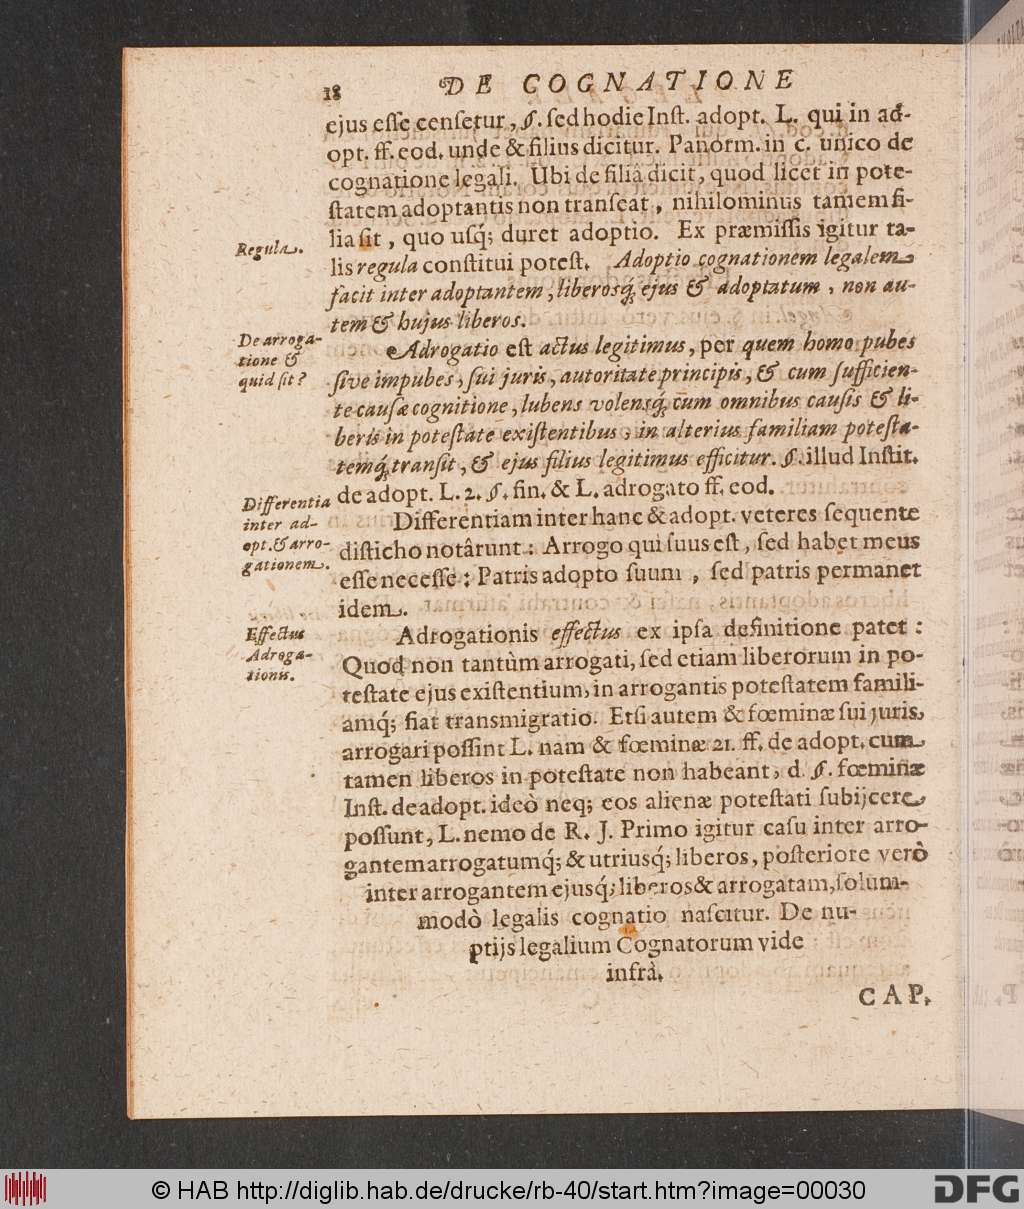 18 DE COGNATIONE
ejus esse censetur, §. sed hodie Inst. adopt. L. qui in ad-
opt. ff. eod. unde & filius dicitur. Panorm. in c. unico de
cognatione legali. Ubi de filiâ dicit, quod licet in pote-
statem adoptantis non transeat, nihilominus tamem fi-
lia sit, quo usq́; duret adoptio. Ex præmissis igitur ta-
Regula.
lis regula constitui potest. Adoptio cognationem legalem
facit inter adoptantem, liberosq́; ejus & adoptatum, non au-
tem & hujus liberos.
De arroga-
tione &
quid sit?
Adrogatio est actus legitimus, per quem homo pubes
sive impubes, sui juris, autoritate principis, & cum sufficien-
te causæ cognitione, lubens volensq́; cum omnibus causis & li-
beris in potestate existentibus, in alterius familiam potesta-
temq́; transit, & ejus filius legitimus efficitur. §. illud Instit.
de adopt. L. 2. §. fin. & L. adrogato ff. eod.
Differentia
inter ad-
opt. & arro-
gationem.
Differentiam inter hanc & adopt. veteres sequente
disticho notârunt: Arrogo qui suus est, sed habet meus
esse necesse: Patris adopto suum, sed patris permanet
idem.
Effectus
Adroga-
tionis.
Adrogationis effectus ex ipsa definitione patet:
Quod non tantùm arrogati, sed etiam liberorum in po-
testate ejus existentium, in arrogantis potestatem famili-
amq́; fiat transmigratio. Etsi autem & fœminæ sui juris
arrogari possint L. nam & fœminæ 21. ff. de adopt. cum
tamen liberos in potestate non habeant, d. §. fœminæ
Inst. de adopt. ideò neq; eos alienæ potestati subijcere
possunt, L. nemo de R. J. Primo igitur casu inter arro-
gantem arrogatumq́; & utriusq́; liberos, posteriore verò
inter arrogantem ejusq́; liberos & arrogatam, solum-
modò legalis cognatio nascitur. De nu-
ptijs legalium Cognatorum vide
infrà.
CAP.
© HAB http://diglib.hab.de/drucke/rb-40/start.htm?image=00030
DFG